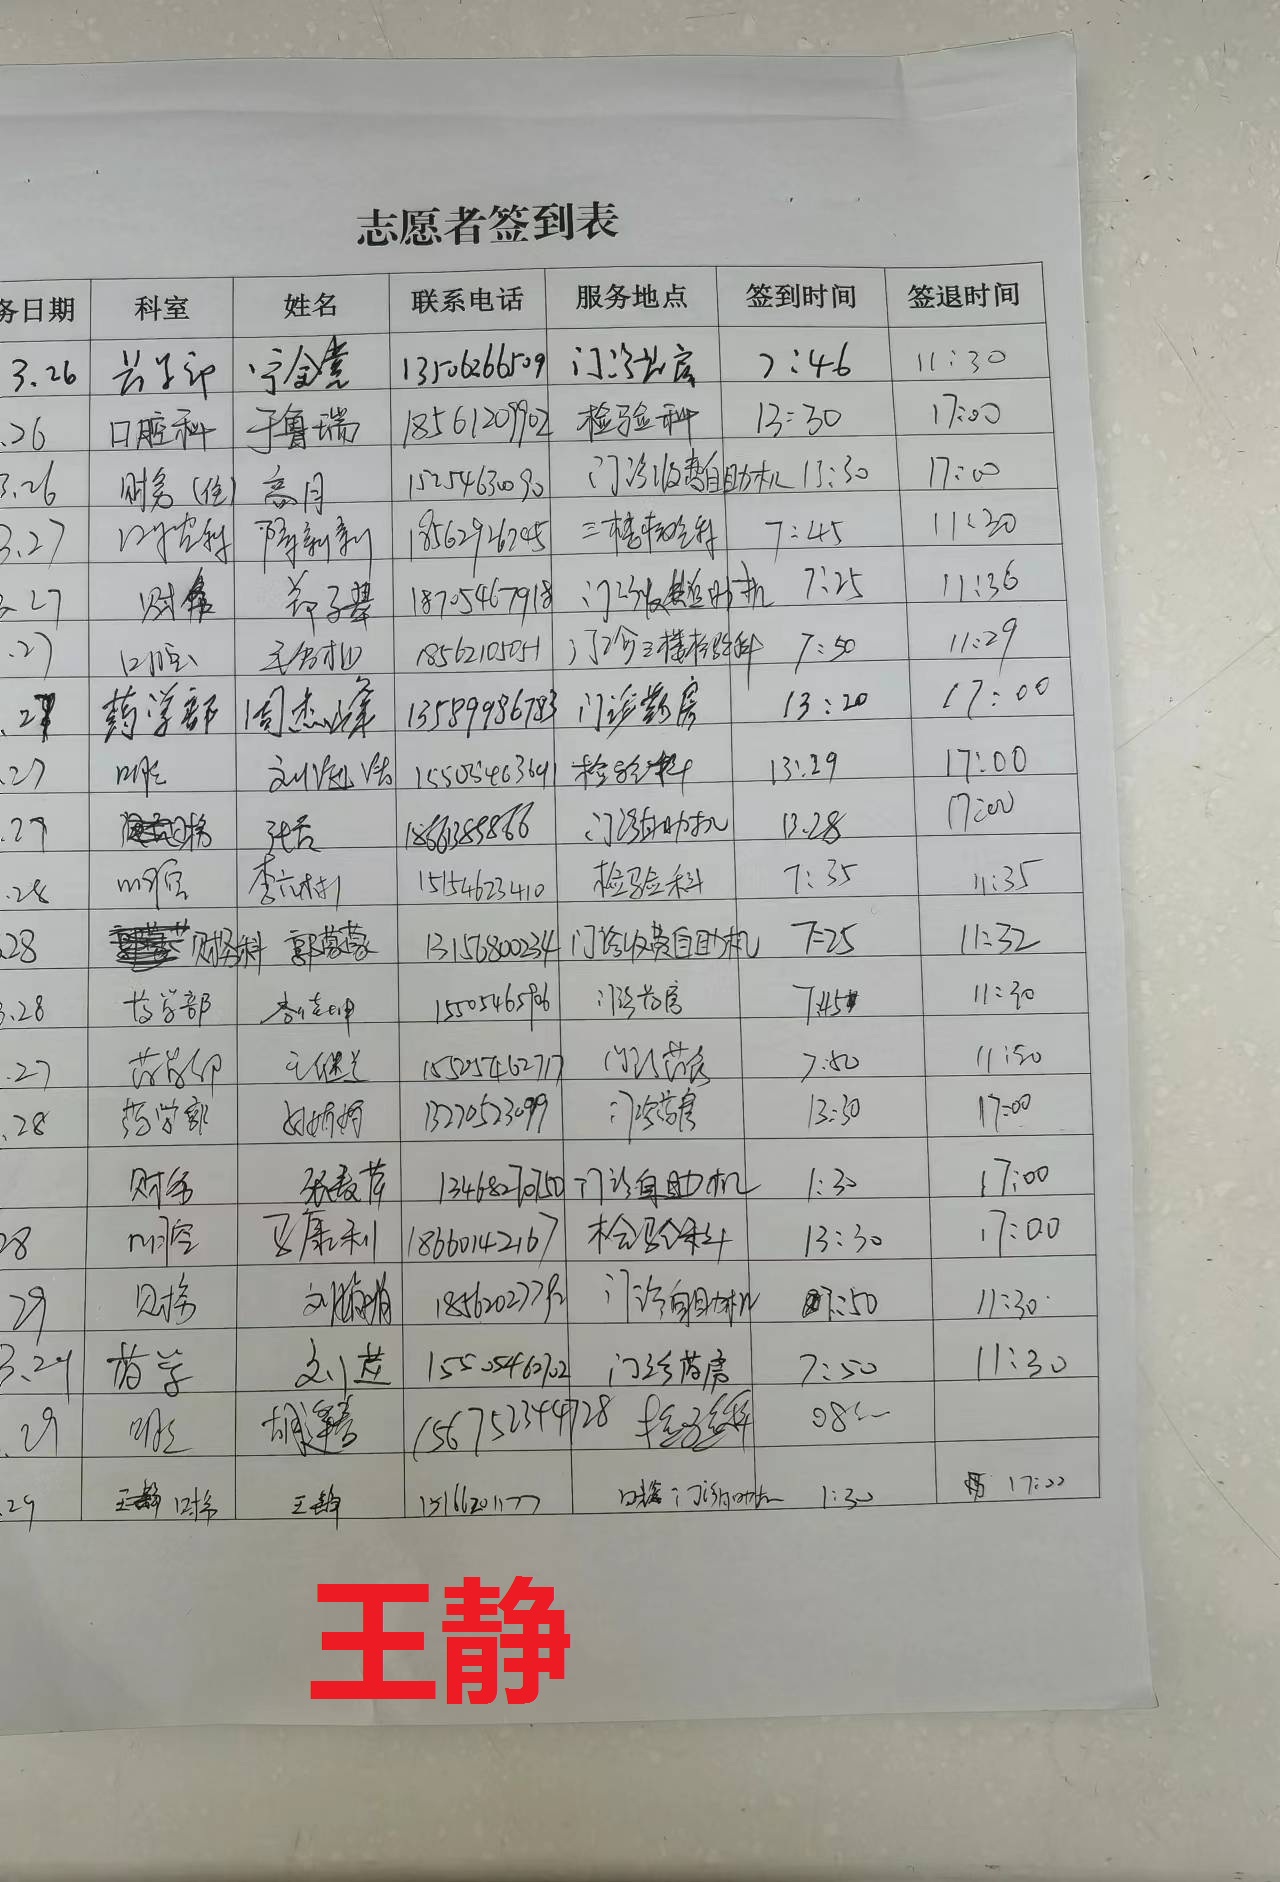 志愿者签到表
务日期 科室 姓名 联系电话 服务地点 签到时间 签退时间
3.26 药学部 宁金亮 13506266509 门诊药房 7:46 11:30
.26 口腔科 于鲁瑞 18561209902 检验科 13:30 17:00
3.26 财务(住) 高月 15254630090 门诊收费自助机 13:30 17:00
3.27 口腔科 18562926745 三楼检验科 7:45 11:30
3.27 财务 郑子琴 18705467918 门诊收费自助机 7:25 11:36
.27 口腔 18562105051 门诊三楼检验科 7:50 11:29
.27 药学部 周杰峰 13589986783 门诊药房 13:20 17:00
.27 口腔 15505463691 检验科 13:29 17:00
.27 财务 张岳 18661385866 门诊自助机 13.28 17:00
.28 口腔 15154623410 检验科 7:35 11:35
.28 财务科 郭蒙蒙 13156800234 门诊收费自助机 7:25 11:32
3.28 药学部 门诊药房 7:45 11:30
.27 药学部 王继兰 15505462717 门诊药房 7:50 11:50
.28 药学部 13270523099 门诊药房 13:30 17:00
财务 13468270750 门诊自助机 1:30 17:00
28 口腔 马康利 18660142167 检验科 13:30 17:00
29 财务 刘娟娟 门诊自助机 7:50 11:30
3.29 药学 刘芷 15505462702 门诊药房 7:50 11:30
.29 口腔 156752344728 检验科 08
.29 财务 王静 门诊自助机 1:30 17:00
王静